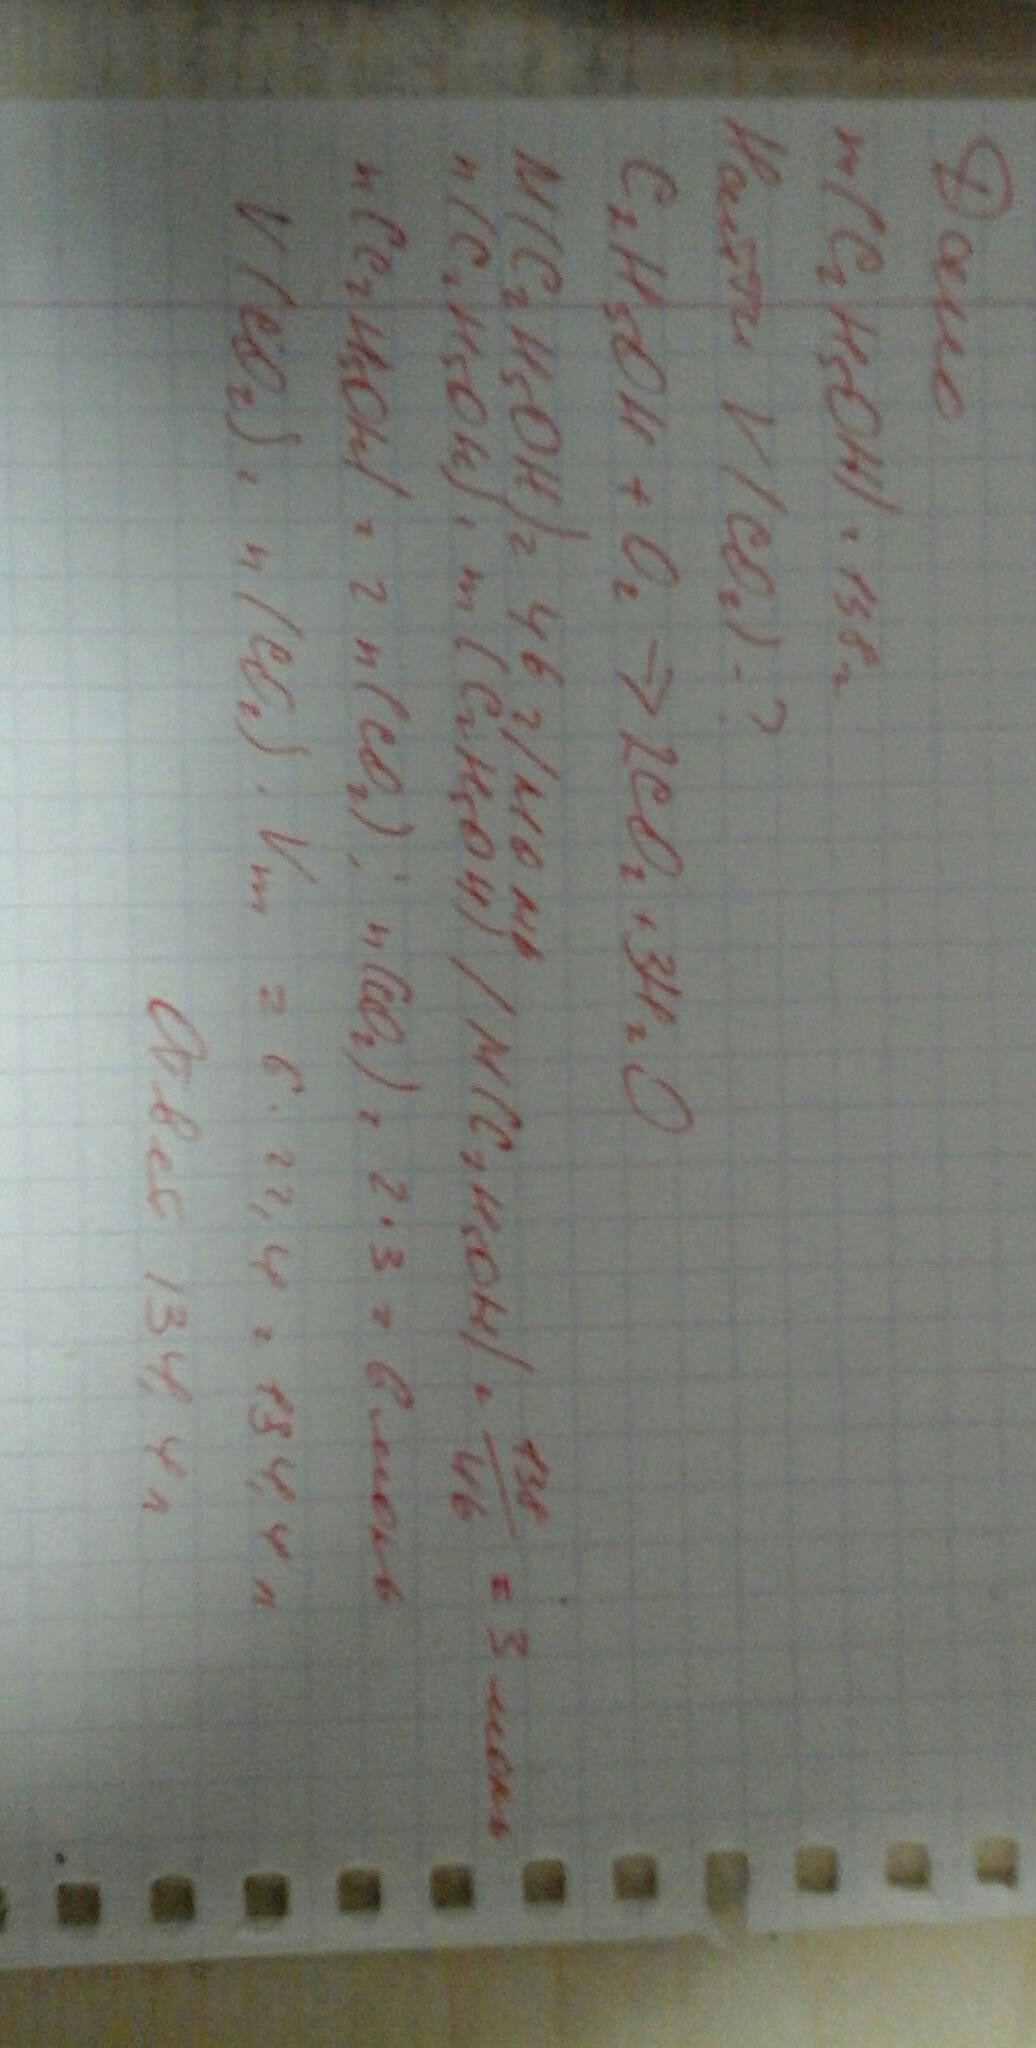 Дано
m(C₂H₅OH) = 138г
Найти V(CO₂) - ?
C₂H₅OH + O₂ → 2CO₂ + 3H₂O
M(C₂H₅OH) = 46 г/моль
n(C₂H₅OH) = m(C₂H₅OH) / M(C₂H₅OH) = 138/46 = 3 моль
n(C₂H₅OH) = 2 n(CO₂); n(CO₂) = 2·3 = 6 моль
V(CO₂) = n(CO₂) · Vm = 6·22,4 = 134,4 л
Ответ 134,4 л